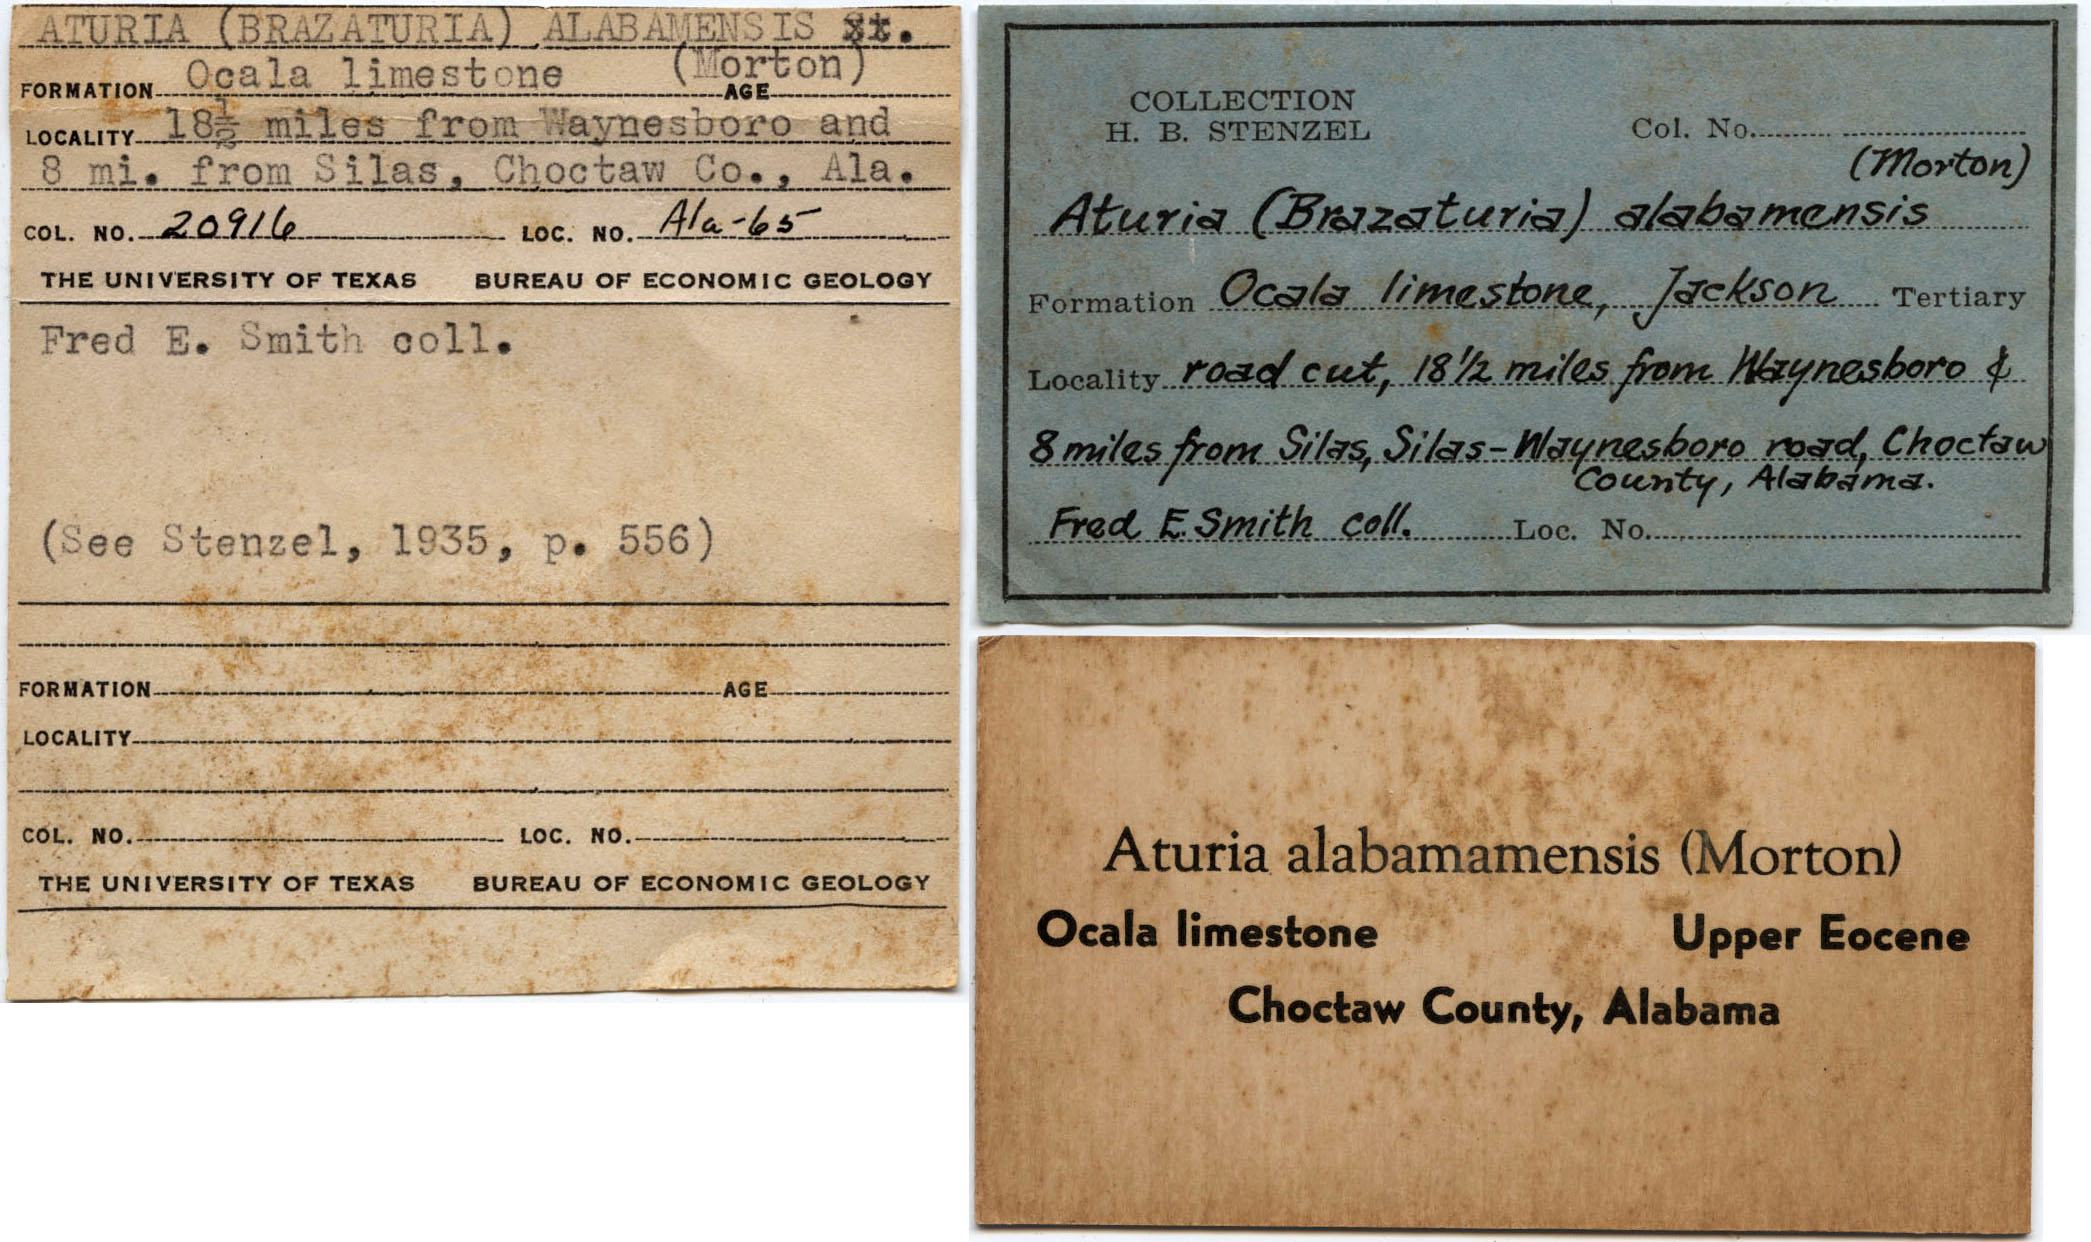 ATURIA (BRAZATURIA) ALABAMENSIS St.
(Morton)
FORMATION Ocala limestone AGE
LOCALITY 18½ miles from Waynesboro and
8 mi. from Silas, Choctaw Co., Ala.
COL. NO. 20916 LOC. NO. Ala-65
THE UNIVERSITY OF TEXAS BUREAU OF ECONOMIC GEOLOGY
Fred E. Smith coll.
(See Stenzel, 1935, p. 556)
FORMATION AGE
LOCALITY
COL. NO. LOC. NO.
THE UNIVERSITY OF TEXAS BUREAU OF ECONOMIC GEOLOGY
COLLECTION
H. B. STENZEL
Col. No.
(Morton)
Aturia (Brazaturia) alabamensis
Formation Ocala limestone, Jackson Tertiary
Locality road cut, 18 1/2 miles from Waynesboro &
8 miles from Silas, Silas-Waynesboro road, Choctaw
County, Alabama.
Fred E. Smith coll. Loc. No.
Aturia alabamamensis (Morton)
Ocala limestone Upper Eocene
Choctaw County, Alabama